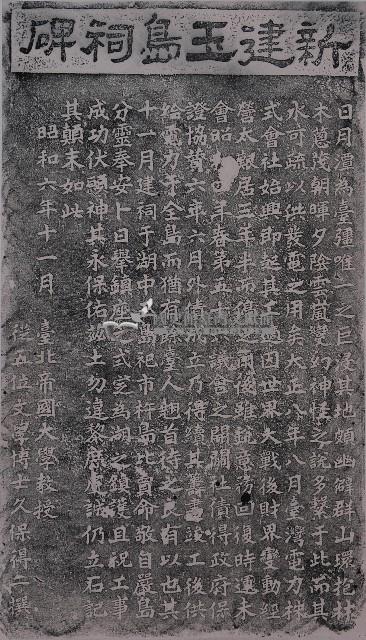 新建玉島祠碑
日月潭為臺疆唯一之巨浸其地頗幽僻群山環抱林
木蔥茂朝暉夕陰雲嵐變幻神怪之說多繫于此而其
水可疏以供發電之用矣大正八年八月臺灣電力株
式會社始興即起其工適因世界大戰後財界變動經
營太艱居三年半而停之爾後雖銳意蕩回復時運未
會昭 年春第五十 議會之開關社債得政府保
證協贊六年六月外債成立乃得續其籌畫竣工後供
給電力于全島而猶有餘臺人翹首待之良有以也其
十一月建祠于湖中 島祀市杵島比賣命敬自嚴島
分靈奉安卜日舉鎮座之式定為湖之鎮護且祝工事
成功伏願神其永保佑茲土勿違黎庶虔誠仍立石記
其顛末如此
昭和六年十一月 臺北帝國大學教授
從五位文學博士久保得二撰